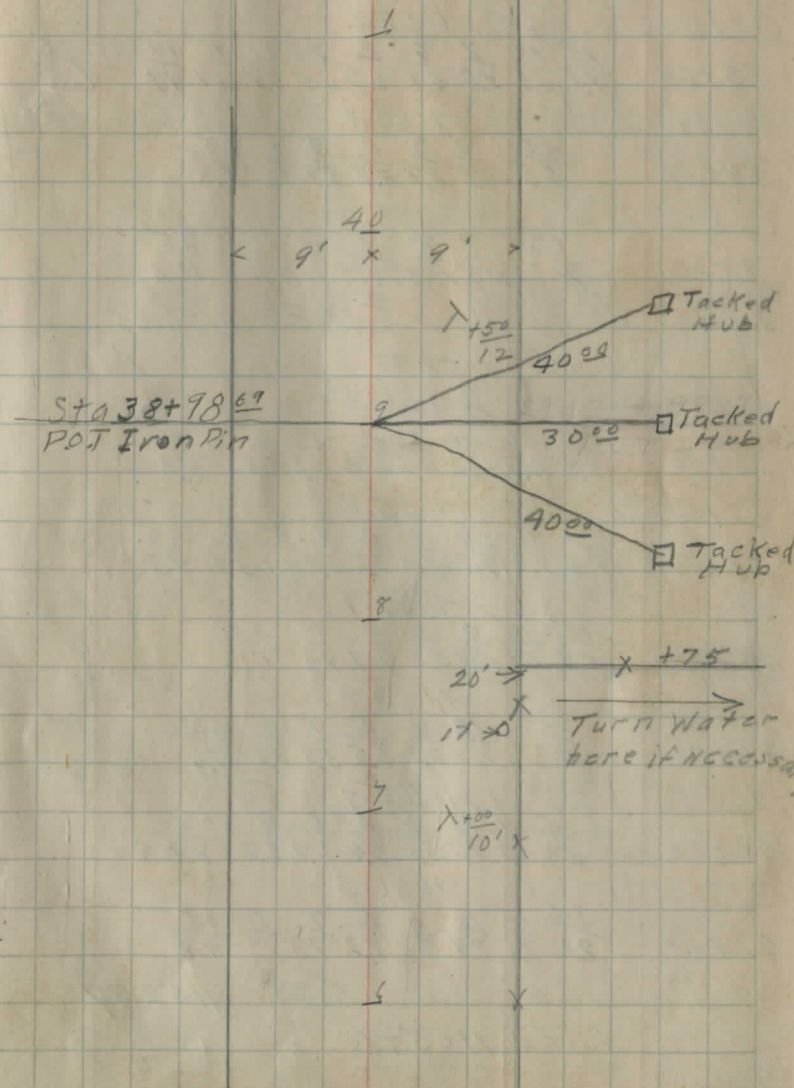 1
40
9' x 9'
λ +50
12
40 00
Tacked
Hub
Sta 38+98 69
9
P.O.T Iron Pin
30 00
Tacked
Hub
40 00
Tacked
Hub
8
20'
+75
17
Turn Water
here if Necessa
7
λ +00
10'
6